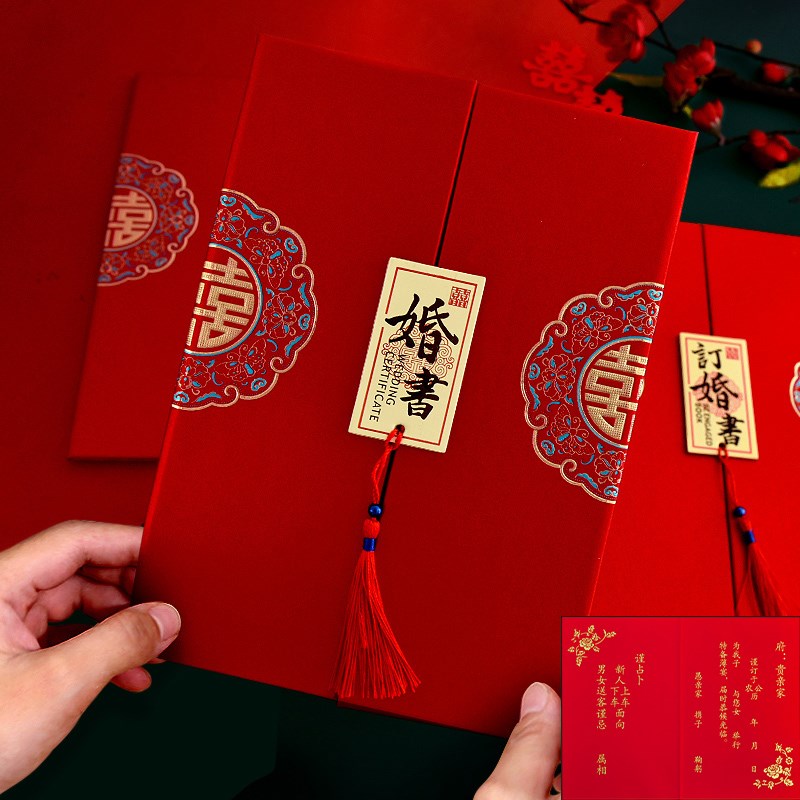 囍
囍
囍
囍
婚書
WEDDING
CERTIFICATE
訂婚書
BE ENGAGED
BOOK
府：贵亲家
谨订于公农历 年 月 日
为我子 与您女 举行
特备薄宴，届时恭候光临。
愚亲家 携子 鞠躬
谨占卜
新人上车下车面向
男女送客谨忌 属相